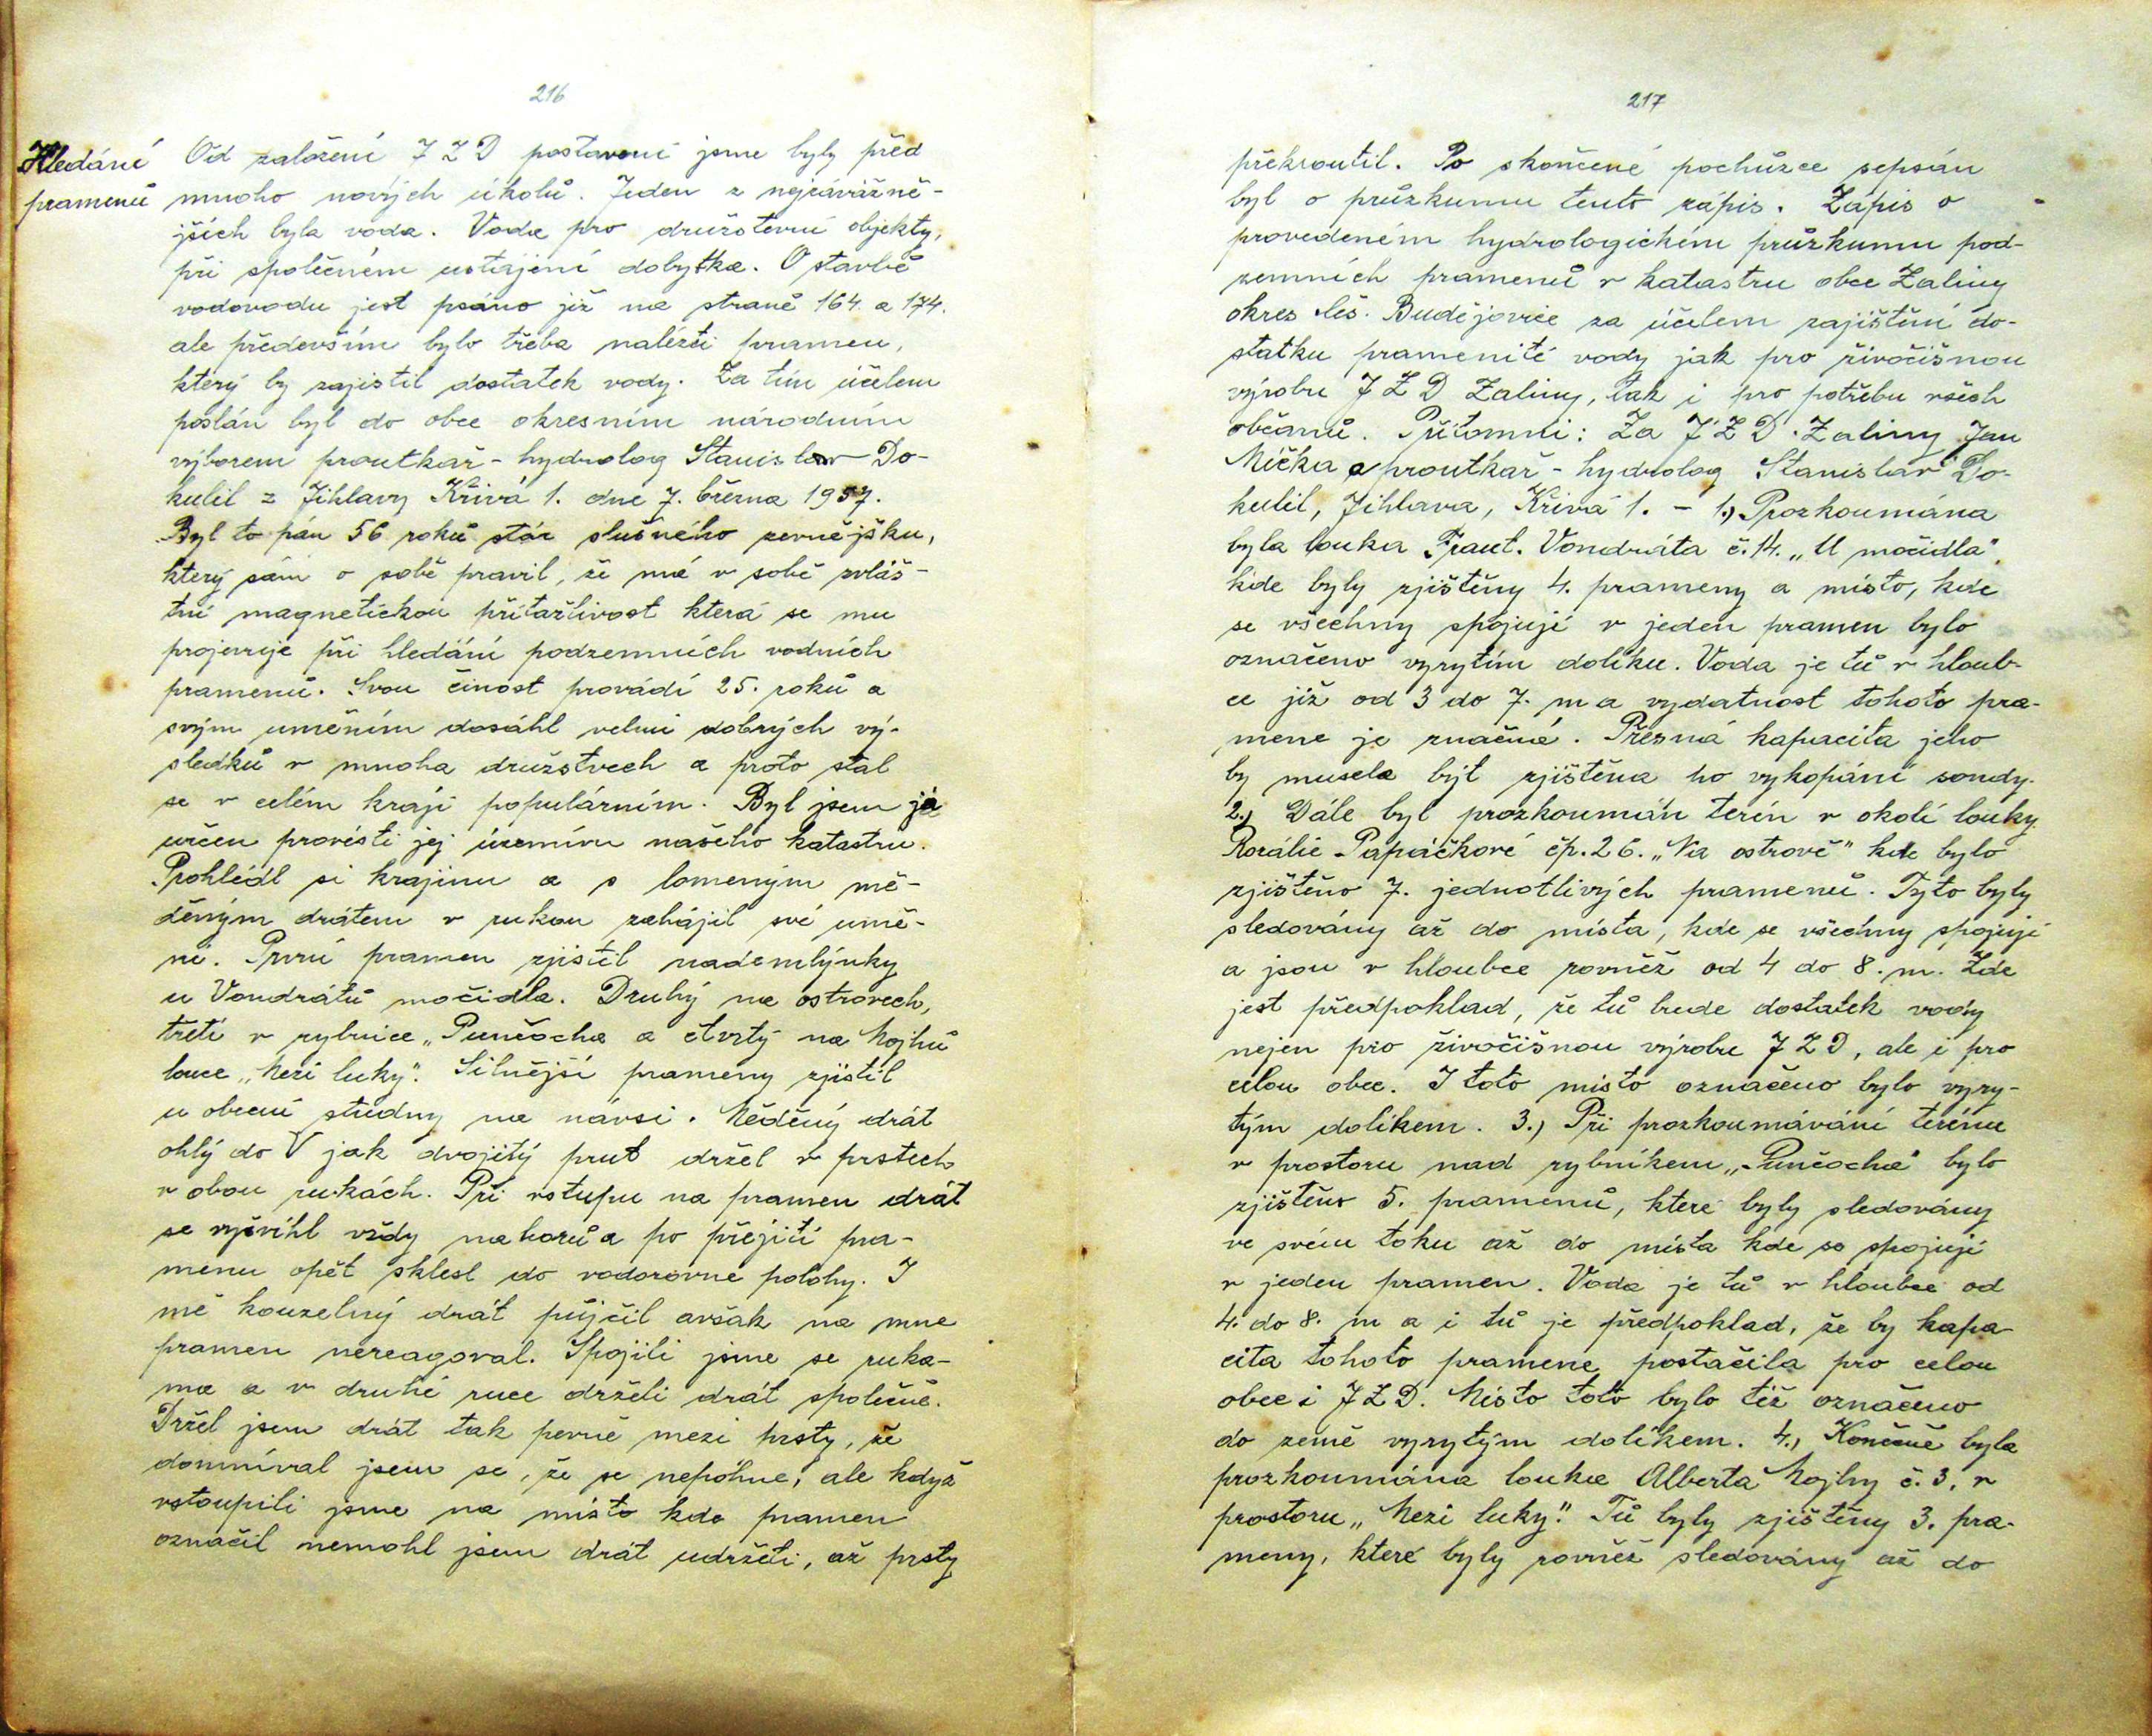 216
Hledání
pramenů
Od založení JZD postaveni jsme byly před
mnoho nových úkolů. Jeden z nejzávážně-
jších byla voda. Voda pro družstevní objekty,
při společném ustájení dobytka. O stavbě
vodovodu jest psáno již na straně 164. a 174.
ale především bylo třeba nalézti pramen,
který by zajistil dostatek vody. Za tím účelem
poslán byl do obce okresním národním
výborem proutkař - hydrolog Stanislav Do-
kulil z Jihlavy Křivá 1. dne 7. března 1957.
Byl to pán 56 roků stár slušného zevnějšku,
který sám o sobě pravil, že má v sobě zvláš-
tní magnetickou přitažlivost která se mu
projevuje při hledání podzemních vodních
pramenů. Svou činost provádí 25. roků a
svým uměním dosáhl velmi dobrých vý-
sledků v mnoha družstvech a proto stal
se v celém kraji populárním. Byl jsem já
určen provésti jej územím našeho katastru.
Pohlédl si krajinu a s lomeným mě-
děným drátem v rukou zahájil své umě-
ní. První pramen zjistil nademlýnky
u Vondrátů močidla. Druhý na ostrovech,
třetí v rybnice „Punčocha a čtvrtý na Mojhů
louce „Mezi luky". Silnější prameny zjistil
u obecní studny na návsi. Měděný drát
ohlý do V jak dvojitý prut držel v prstech
v obou rukách. Při vstupu na pramen drát
se vyšvihl vždy nahorů a po přejití pra-
menu opět sklesl do vodorovné polohy. I
mě kouzelný drát půjčil avšak na mne
pramen nereagoval. Spojili jsme se ruka-
ma a v druhé ruce drželi drát společně.
Držel jsem drát tak pevně mezi prsty, že
domníval jsem se, že se nepohne, ale když
vstoupili jsme na místo kde pramen
označil nemohl jsem drát udržeti, až prsty
217
překroutil. Po skončené pochůzce sepsán
byl o průzkumu tento zápis. Zápis o
provedeném hydrologickém průzkumu pod-
zemních pramenů v katastru obce Zaliny
okres Čes. Budějovice za účelem zajištění do-
statku pramenité vody jak pro živočišnou
výrobu JZD Zaliny, tak i pro potřebu všech
občanů. Přítomni: Za JZD. Zaliny Jan
Míčka a proutkař - hydrolog Stanislav Do-
kulil, Jihlava, Křivá 1. - 1.) Prozkoumána
byla louka Frant. Vondráta č. 14. „U močidla",
kde byly zjištěny 4. prameny a místo, kde
se všechny spojují v jeden pramen bylo
označeno vyrytím dolíku. Voda je tů v hloub-
ce již od 3 do 7. m a vydatnost tohoto pra-
mene je značná. Přesná kapacita jeho
by musela být zjištěna po vykopání sondy.
2.) Dále byl prozkoumán terén v okolí louky
Rozálie Papáčkové čp. 26. „Na ostrově" kde bylo
zjištěno 7. jednotlivých pramenů. Tyto byly
sledovány až do místa, kde se všechny spojují
a jsou v hloubce rovněž od 4 do 8. m. Zde
jest předpoklad, že tů bude dostatek vody
nejen pro živočišnou výrobu JZD, ale i pro
celou obec. I toto místo označeno bylo vyry-
tým dolíkem. 3.) Při prozkoumávání terénu
v prostoru nad rybníkem „Punčocha" bylo
zjištěno 5. pramenů, které byly sledovány
ve svém toku až do místa kde se spojují
v jeden pramen. Voda je tů v hloubce od
4. do 8. m a i tů je předpoklad, že by kapa-
cita tohoto pramene postačila pro celou
obec i JZD. Místo toto bylo též označeno
do země vyrytým dolíkem. 4.) Konečně byla
prozkoumána louka Alberta Mojhy č. 3. v
prostoru „Mezi luky." Tů byly zjištěny 3. pra-
meny, které byly rovněž sledovány až do